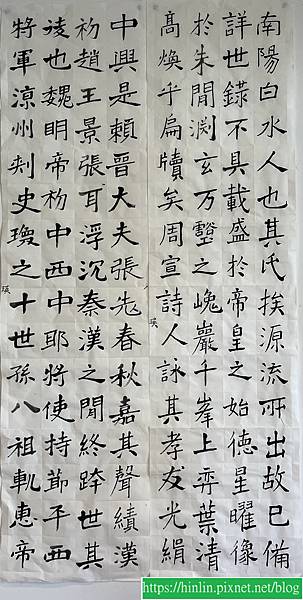 南陽白水人也其氏挨源流所出故已備
詳世錄不具載盛於帝皇之始德星曜像
於朱閒渕玄万壑之巉巖千峯上弈葉清
高煥乎扁牘矣周宣詩人詠其孝友光緝
中興是賴晉大夫張老春秋嘉其聲績漢
初趙王景張耳浮沉秦漢之閒終跨世其
也魏明帝初中西中郎將使持節平西
將軍涼州刺史瓊之十世孫八祖軌惠帝
https://hinlin.pixnet.net/blog